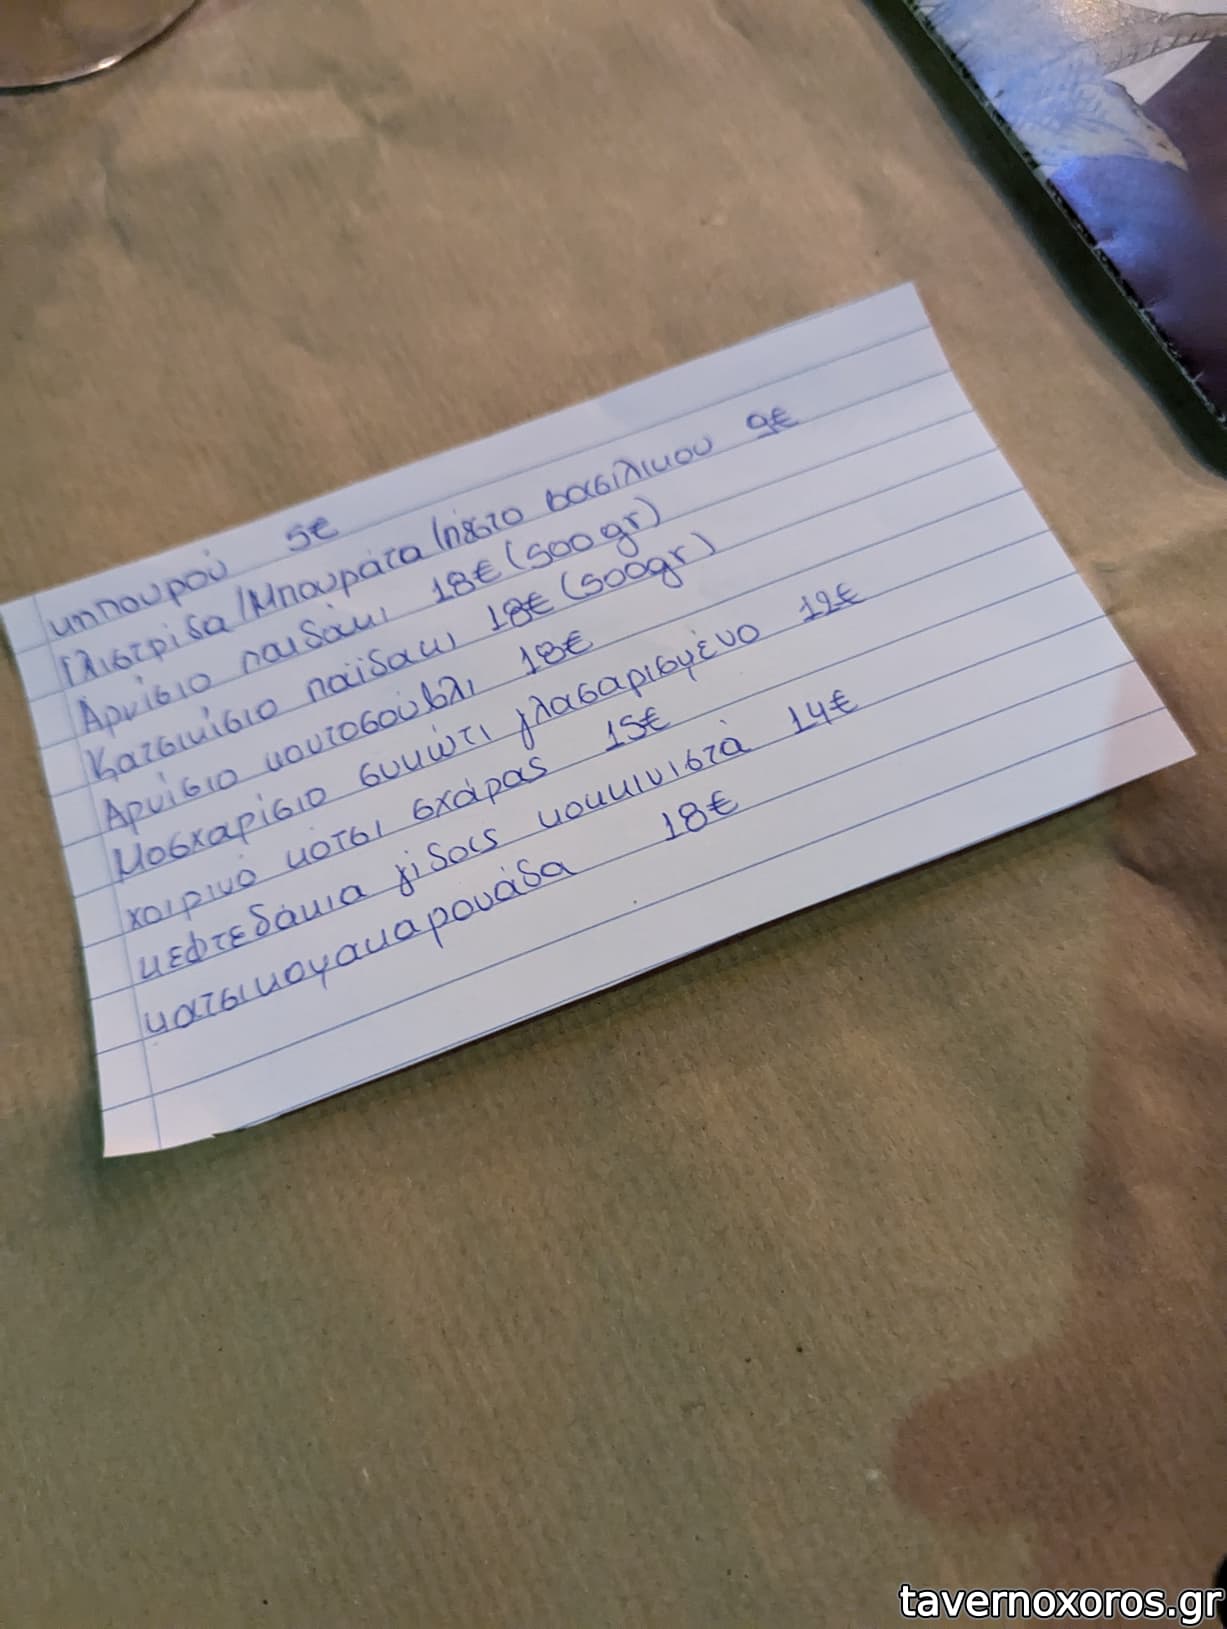 μπουρού 5€
Γλιστρίδα/Μπουράτα/πέστο βασιλικου 9€
Αρνίσιο παιδάκι 18€ (500gr)
Κατσικίσιο παϊδακι 18€ (500gr)
Αρνίσιο κοντοσούβλι 18€
Μοσχαρίσιο συκώτι γλασαρισμένο 12€
χοιρινό κότσι σχάρας 15€
κεφτεδάκια γίδας κοκκινιστά 14€
κατσικομακαρονάδα 18€
tavernoxoros.gr